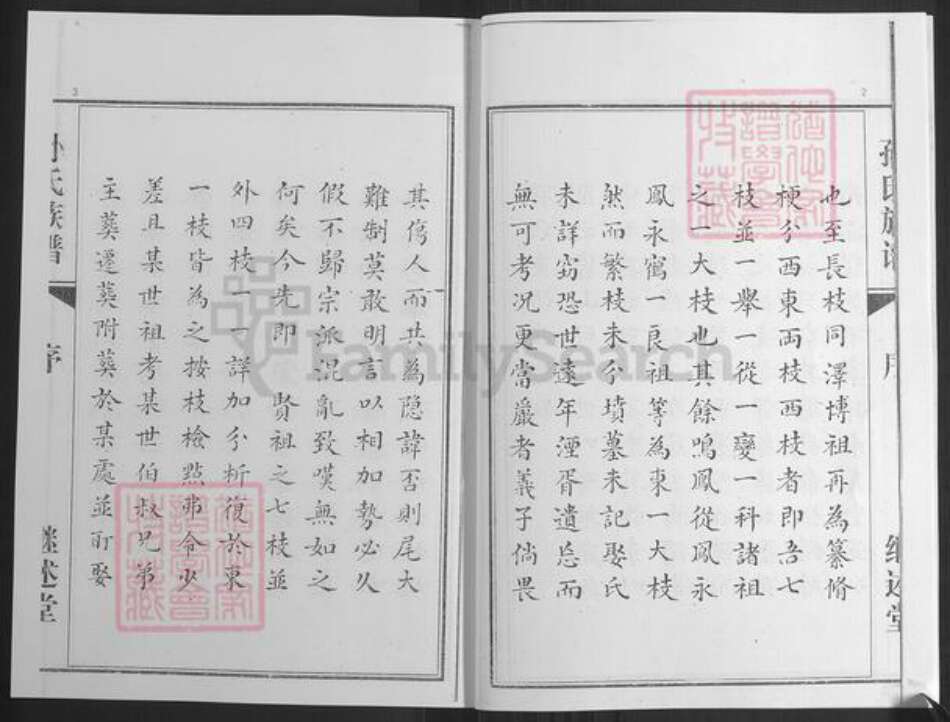 孙氏族谱
序
继述堂
2
也至長枝同澤博祖再為纂脩
梗分西東両枝西枝者即吾七
枝並一舉一從一變一科諸祖
之一大枝也其餘鳴鳳從鳳永
鳳永寉一良祖等為東一大枝
然而繁枝未分墳墓未記娶氏
未詳窃恐世遠年湮胥遺忘而
無可考况更當嚴者義子倘畏
其傷人而共為隐諱否則尾大
難制莫敢明言以相加勢必久
假不歸宗派混亂致嘆無如之
何矣今先即 賢祖之七枝並
外四枝一一詳加分析復於東
一枝皆為之按枝檢點弗令少
差且某世祖考某世伯叔兄弟
主葵遷葵附葵於某處並所娶
3
孙氏族譜
序
继述堂
FamilySearch